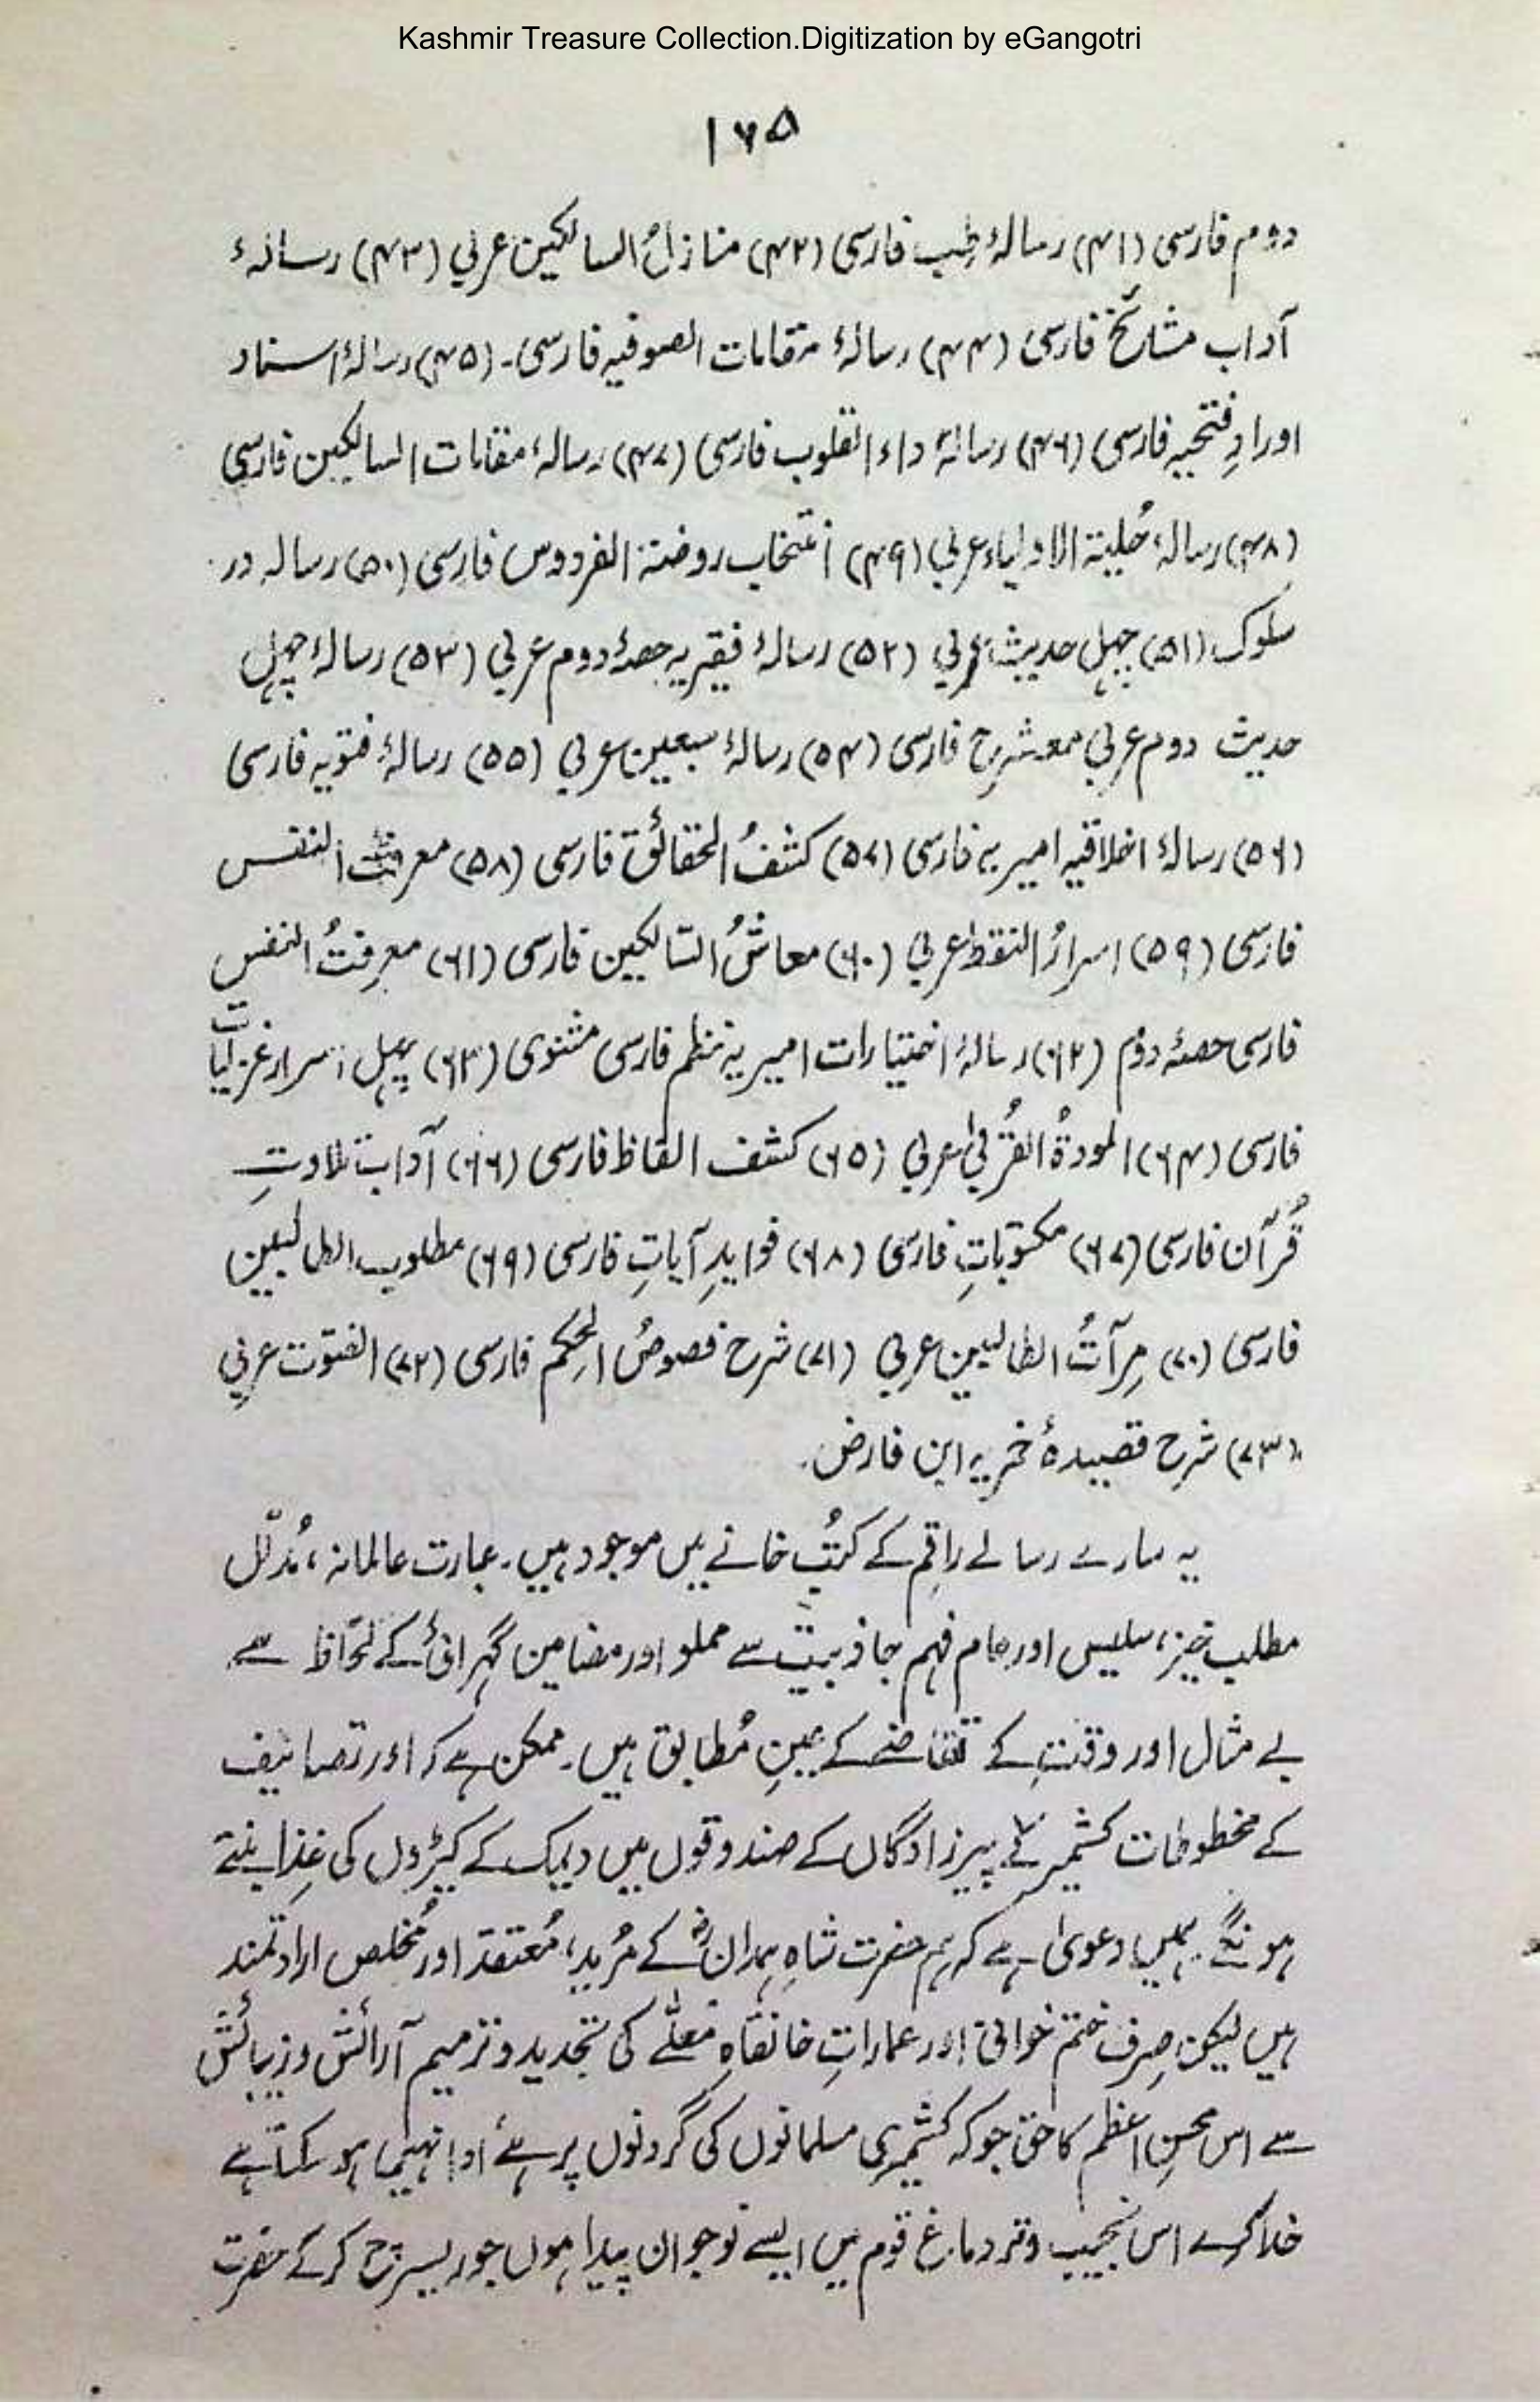 Kashmir Treasure Collection.Digitization by eGangotri
۱۶۵
دوم فارسی (۴۱) رسالۂ طِب فارسی (۴۲) منازلُ السالکین عربی (۴۳) رسالۂ
آداب مشائخ فارسی (۴۴) رسالۂ مقامات الصوفیہ فارسی۔ (۴۵) رسالۂ اسناد
اورادِ فتحیہ فارسی (۴۶) رسالۂ داء القلوب فارسی (۴۷) رسالۂ مقامات السالکین فارسی
(۴۸) رسالۂ حُلیۃ الاولیاء عربی (۴۹) انتخاب روضۃ الفردوس فارسی (۵۰) رسالہ در
سلوک (۵۱) چہل حدیث عربی (۵۲) رسالۂ فقیریہ حصۂ دوم عربی (۵۳) رسالۂ چہل
حدیث دوم عربی معہ شرح فارسی (۵۴) رسالۂ سبعین عربی (۵۵) رسالۂ فتوبہ فارسی
(۵۶) رسالۂ اخلاقیہ امیریہ فارسی (۵۷) کشفُ الحقائق فارسی (۵۸) معرفتُ النفس
فارسی (۵۹) اسرارُ النقط عربی (۶۰) معاشُ السّالکین فارسی (۶۱) معرفتُ النفس
فارسی حصۂ دوُم (۶۲) رسالۂ اختیارات امیریہ نظم فارسی مثنوی (۶۳) چہل اسرار غزلیات
فارسی (۶۴) المودۃُ القُربیٰ عربی (۶۵) کشف الفاظ فارسی (۶۶) آداب تلاوتِ
قُرآن فارسی (۶۷) مکتوباتِ فارسی (۶۸) فوایدِ آیاتِ فارسی (۶۹) مطلوب الطالبین
فارسی (۷۰) مِرآتُ الطالبین عربی (۷۱) شرح فصوصُ الحِکم فارسی (۷۲) الفتوّت عربی
(۷۳) شرحِ قصیدۂ خمریہ ابن فارض۔
یہ سارے رسالے راقِم کے کتُب خانے میں موجود ہیں۔ عبارت عالمانہ، مُدلّل
مطلب خیز، سلیس اور عام فہم جاذبیت سے مملو اور مضامین گہرائی کے لحاظ سے
بے مثال اور وقت کے تقاضے کے عینِ مُطابق ہیں۔ ممکن ہے کہ اور تصانیف
کے مخطوطات کشمیر کے پیرزادگاں کے صندوقوں میں دیمک کے کیڑوں کی غِذا بنتے
ہونگے۔ ہمیں دعویٰ ہے کہ ہم حضرت شاہِ ہمدانؒ کے مُرید، مُعتقد اور مُخلص ارادتمند
ہیں لیکن صِرف ختم خوانی اور عماراتِ خانقاہِ معلّے کی تجدید و ترمیم آرائش و زیبائش
سے اس محسنِ اعظم کا حق جو کہ کشمیری مسلمانوں کی گردنوں پر ہے ادا نہیں ہو سکتا ہے
خدا کرے اس نجیب و تر دماغ قوم میں ایسے نوجوان پیدا ہوں جو ریسرچ کر کے حضرت